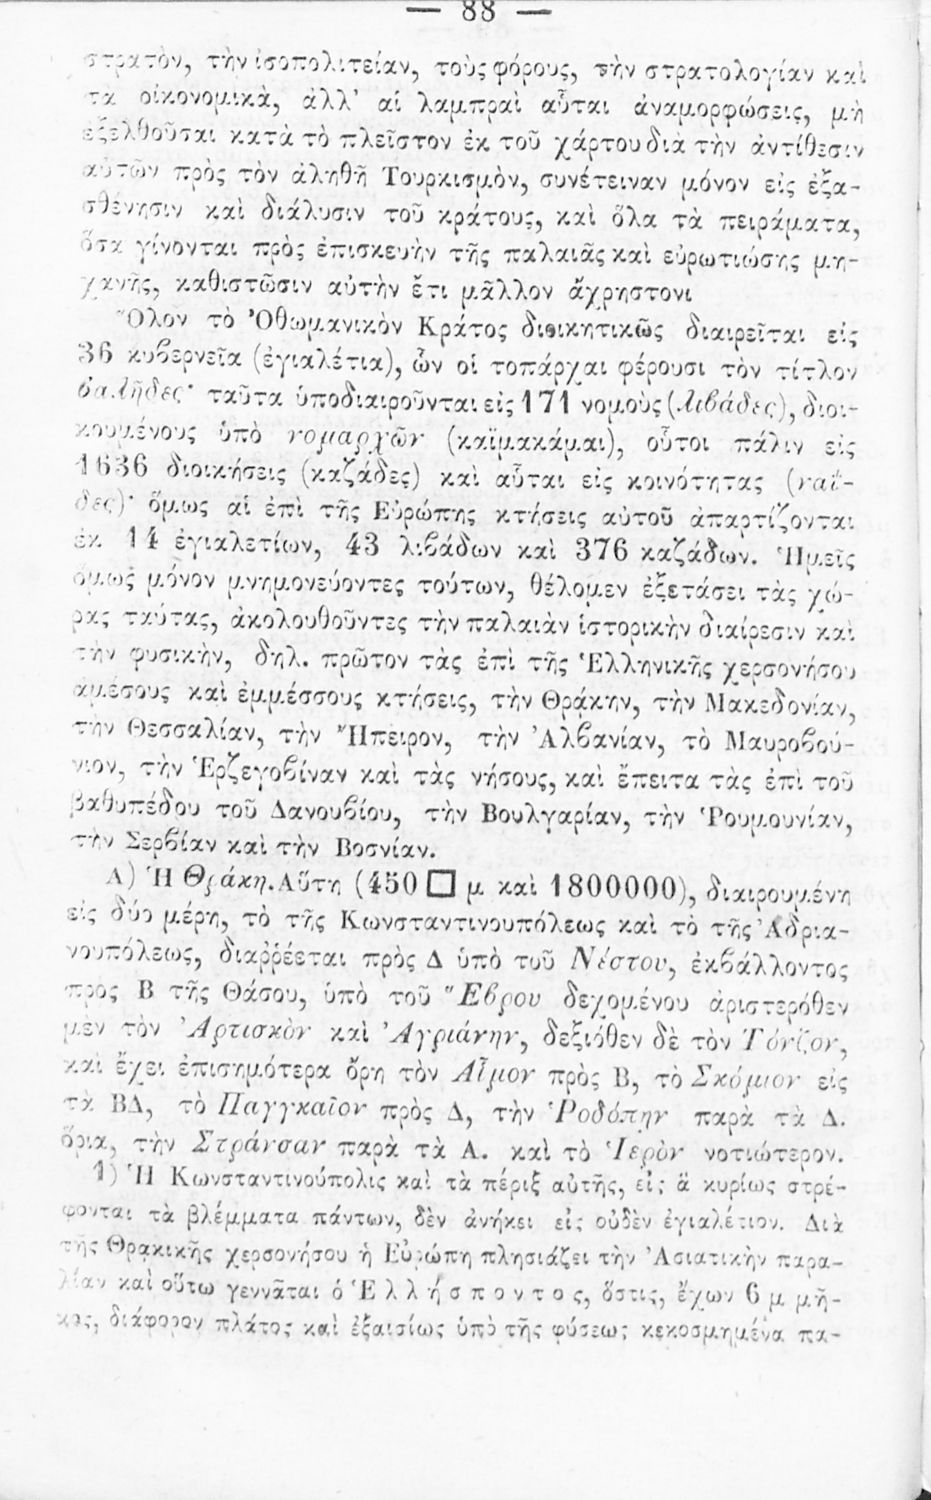 — 88 —
στρατὸν, τὴν ἰσοπολιτείαν, τοὺς φόρους, τὴν στρατολογίαν καὶ
τὰ οἰκονομικὰ, ἀλλ' αἱ λαμπραὶ αὗται ἀναμορφώσεις, μὴ
ἐξελθοῦσαι κατὰ τὸ πλεῖστον ἐκ τοῦ χάρτου διὰ τὴν ἀντίθεσιν
αὐτῶν πρὸς τὸν ἀληθῆ Τουρκισμὸν, συνέτειναν μόνον εἰς ἐξα-
σθένησιν καὶ διάλυσιν τοῦ κράτους, καὶ ὅλα τὰ πειράματα,
ὅσα γίνονται πρὸς ἐπισκευὴν τῆς παλαιᾶς καὶ εὐρωτιώσης μη-
χανῆς, καθιστῶσιν αὐτὴν ἔτι μᾶλλον ἄχρηστονι
Ὅλον τὸ Ὀθωμανικὸν Κράτος διοικητικῶς διαιρεῖται εἰς
36 κυβερνεῖα (ἐγιαλέτια), ὧν οἱ τοπάρχαι φέρουσι τὸν τίτλον
βαλῆδες· ταῦτα ὑποδιαιροῦνται εἰς 171 νομοὺς (λιβάδες), διοι-
κουμένους ὑπὸ νομαρχῶν (καϊμακάμαι), οὗτοι πάλιν εἰς
1636 διοικήσεις (καζάδες) καὶ αὗται εἰς κοινότητας (ναΐ-
δες)· ὅμως αἱ ἐπὶ τῆς Εὐρώπης κτήσεις αὐτοῦ ἀπαρτίζονται
ἐκ 14 ἐγιαλετίων, 43 λιβάδων καὶ 376 καζάδων. Ἡμεῖς
ὅμως μόνον μνημονεύοντες τούτων, θέλομεν ἐξετάσει τὰς χώ-
ρας ταύτας, ἀκολουθοῦντες τὴν παλαιὰν ἱστορικὴν διαίρεσιν καὶ
τὴν φυσικὴν, δηλ. πρῶτον τὰς ἐπὶ τῆς Ἑλληνικῆς χερσονήσου
ἀμέσους καὶ ἐμμέσσους κτήσεις, τὴν Θράκην, τὴν Μακεδονίαν,
τὴν Θεσσαλίαν, τὴν Ἤπειρον, τὴν Ἀλβανίαν, τὸ Μαυροβού-
νιον, τὴν Ἑρζεγοβίναν καὶ τὰς νήσους, καὶ ἔπειτα τὰς ἐπὶ τοῦ
βαθυπέδου τοῦ Δανουβίου, τὴν Βουλγαρίαν, τὴν Ῥουμουνίαν,
τὴν Σερβίαν καὶ τὴν Βοσνίαν.
Α) Ἡ Θράκη. Αὕτη (450 □ μ καὶ 1800000), διαιρουμένη
εἰς δύο μέρη, τὸ τῆς Κωνσταντινουπόλεως καὶ τὸ τῆς Ἀδρια-
νουπόλεως, διαῤῥέεται πρὸς Δ ὑπὸ τοῦ Νέστου, ἐκβάλλοντος
πρὸς Β τῆς Θάσου, ὑπὸ τοῦ Ἕβρου δεχομένου ἀριστερόθεν
μὲν τὸν Ἀρτισκὸν καὶ Ἀγριάνην, δεξιόθεν δὲ τὸν Τόνζον,
καὶ ἔχει ἐπισημότερα ὄρη τὸν Αἷμον πρὸς Β, τὸ Σκόμιον εἰς
τὰ ΒΔ, τὸ Παγγκαῖον πρὸς Δ, τὴν Ῥοδόπην παρὰ τὰ Δ.
ὅρια, τὴν Στράνσαν παρὰ τὰ Α. καὶ τὸ Ἱερὸν νοτιώτερον.
1) Ἡ Κωνσταντινούπολις καὶ τὰ πέριξ αὐτῆς, εἰς ἃ κυρίως στρέ-
φονται τὰ βλέμματα πάντων, δὲν ἀνήκει εἰς οὐδὲν ἐγιαλέτιον. Διὰ
τῆς Θρακικῆς χερσονήσου ἡ Εὐρώπη πλησιάζει τὴν Ἀσιατικὴν παρα-
λίαν καὶ οὕτω γεννᾶται ὁ Ἑλλήσποντος, ὅστις, ἔχων 6 μ μῆ-
κος, διάφορον πλάτος καὶ ἐξαισίως ὑπὸ τῆς φύσεως κεκοσμημένα πα-